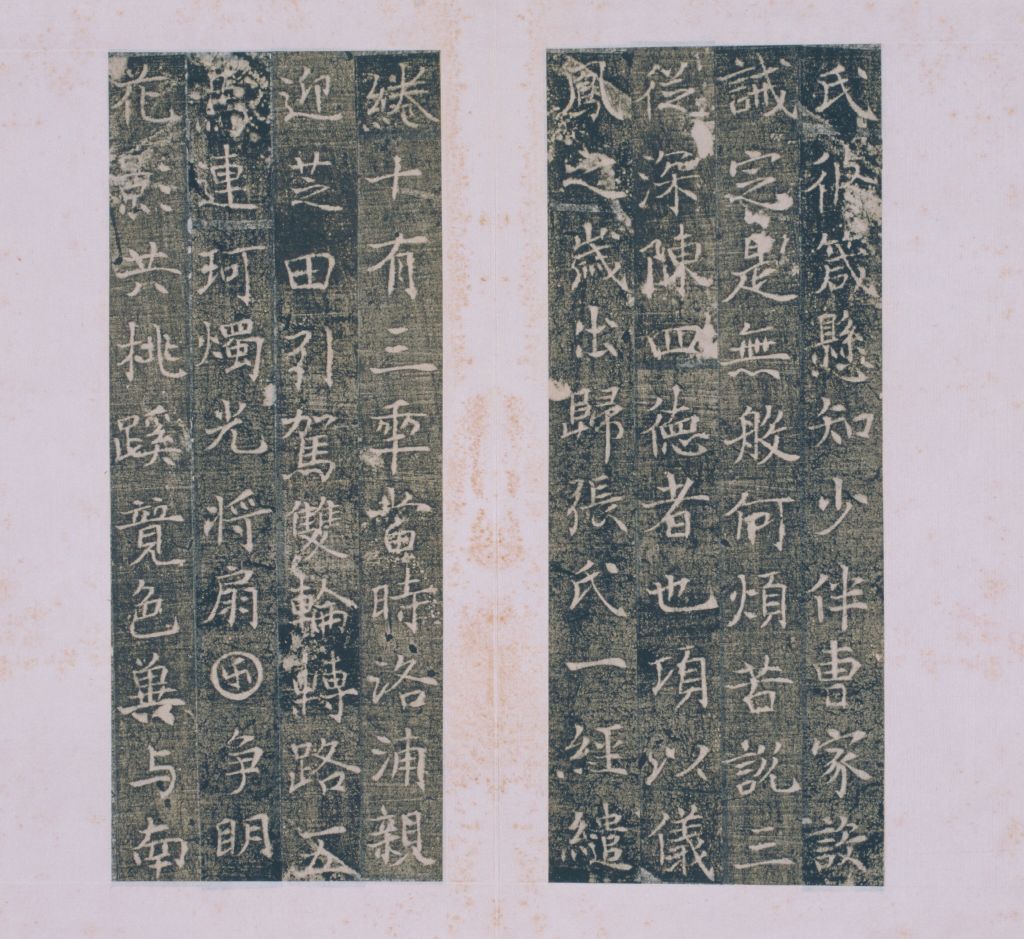 氏攸箴懸知少伴曹家設
誡定是無般何煩苦説三
從深陳四德者也項以儀
鳳之歲出歸張氏一經繾
綣十有三秊當時洛浦親
迎芝田引駕雙輪轉路五
連珂燭光將扇𡆠争明
花影共桃蹊竟色兼与南